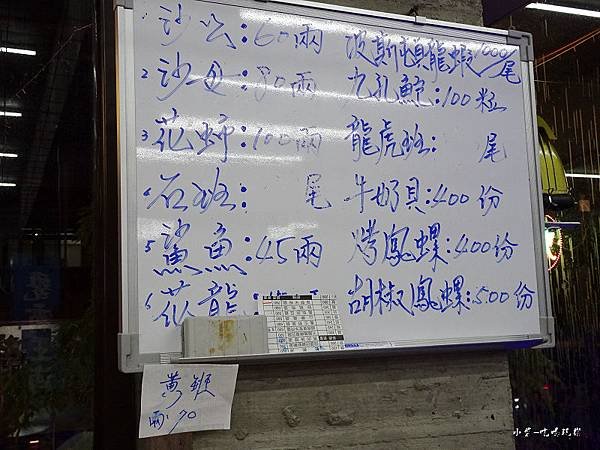 1. 沙公:60兩 波斯頓龍蝦1000/尾
2 沙母:80兩 九孔鮑:100粒
3 花蚌:100兩 龍虎班: 尾
石班: 尾 牛奶貝:400份
5 鯊魚:45兩 烤鳳螺:400份
6 花龍: 胡椒鳳螺:500份
黃鰹
兩:90
小芊-吃喝玩樂